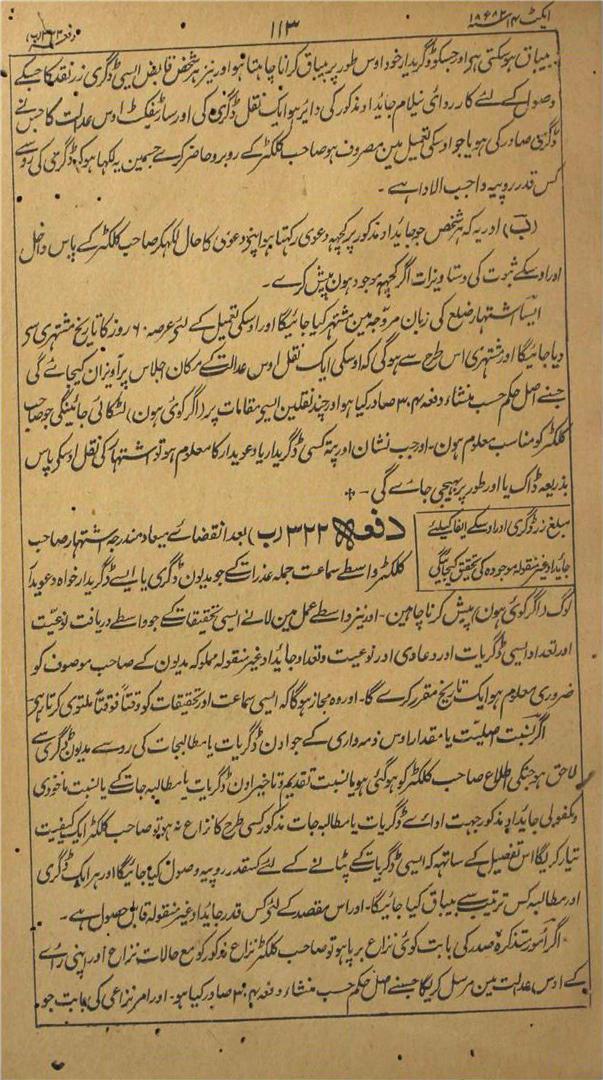 ایکٹ ۱۴ ۱۸۸۲ء
۱۱۳
دفعہ ۳۲۲ (ب)
بیباق ہوسکتی ہو اور جسکو ڈگریدار خود اوس طور پر بیباق کرنا چاہتا ہو اور نیز ہر شخص قابض ایسی ڈگری زر نقد کا جسکے
وصول کے لئے کارروائی نیلام جائداد مذکور کی دایر ہو ایک نقل ڈگری کی اور سارٹیفکٹ اوس عدالت کا جسنے
ڈگری صادر کی ہو یا جو اوسکی تعمیل مین مصروف ہو صاحب کلکٹر کے روبرو حاضر کرے جسمین یہ لکھا ہو کہ ڈگری کی رو سے
کس قدر روپیہ واجب الادا ہے ۔
(ب) اور یہ کہ ہر شخص جو جائداد مذکور پر کچہہ دعوی رکہتا ہو اپنے دعوی کا حال لکہکر صاحب کلکٹر کے پاس داخل کرے
اور اوسکے ثبوت کی دستاویزات اگر کچہہ موجود ہون پیش کرے ۔
ایسا اشتہار ضلع کی زبان مروجہ مین مشتہر کیا جائیگا اور اوسکی تعمیل کے لئے عرصہ ۶۰ روز کا تاریخ مشتہری سے
دیا جائیگا اور مشتہری اس طرح سے ہوگی کہ اوسکی ایک نقل اوس عدالت کے مکان اجلاس پر آویزان کیجائے گی
جسنے اصل حکم حسب منشاء دفعہ ۳۰۴ صادر کیا ہو اور چند نقلین ایسے مقامات پر (اگر کوئی ہون) لٹکائی جائینگی جو صاحب
کلکٹر کو مناسب معلوم ہون ۔ اور جب نشان اور پتہ کسی ڈگریدار یا دعویدار کا معلوم ہو تو اشتہار کی نقل اوسکے پاس
بذریعہ ڈاک یا اور طور پر بہیجی جائے گی ۔
مبلغ زر ڈگری اور اوسکے ایفا کیلئے
جائداد غیر منقولہ موجودہ کی تحقیق کیجائیگی
دفعہ ۳۲۲ (ب) بعد انقضائے میعاد مندرجہ اشتہار صاحب
کلکٹر واسطے سماعت جملہ عذرات کے جو مدیون ڈگری یا ایسے ڈگریدار خواہ دعویدار
لوگ (اگر کوئی ہون) پیش کرنا چاہین ۔ اور نیز واسطے عمل مین لانے ایسی تحقیقات کے جو واسطے دریافت نوعیت
اور تعداد ایسی ڈگریات اور دعاوی اور نوعیت و تعداد جائداد غیر منقولہ مملوکہ مدیون کے صاحب موصوف کو
ضروری معلوم ہو ایک تاریخ مقرر کرے گا ۔ اور وہ مجاز ہوگا کہ ایسی سماعت اور تحقیقات کو وقتاً فوقتاً ملتوی کرتا رہے
اگر نسبت اصلیت یا مقدار اوس ذمہ داری کے جو اون ڈگریات یا مطالبجات کی رو سے مدیون ڈگری سے
لاحق ہو جنکی اطلاع صاحب کلکٹر کو ہو گئی ہو یا نسبت تقدیم و تاخیر اون ڈگریات یا مطالبہ جات کے یا نسبت ماخوذی
و مکفولی جائداد مذکور جہت ادائے ڈگریات یا مطالبہ جات مذکور کسی طرح کا نزاع نہ ہو تو صاحب کلکٹر ایک کیفیت
تیار کریگا اس تفصیل کے ساتہہ کہ ایسی ڈگریات کے پٹانے کے لئے کسقدر روپیہ وصول کیا جائیگا اور ہر ایک ڈگری
اور مطالبہ کس ترتیب سے بیباق کیا جائیگا ۔ اور اس مقصد کے لئے کس قدر جائداد غیر منقولہ قابل حصول ہے ۔
اگر امور متذکرۂ صدر کی بابت کوئی نزاع برپا ہو تو صاحب کلکٹر نزاع مذکور کو مع حالات نزاع اور اپنی رائے
کے اوس عدالت مین مرسل کریگا جسنے اصل حکم حسب منشاء دفعہ ۳۰۴ صادر کیا ہو ۔ اور امر نزاعی کی بابت جو